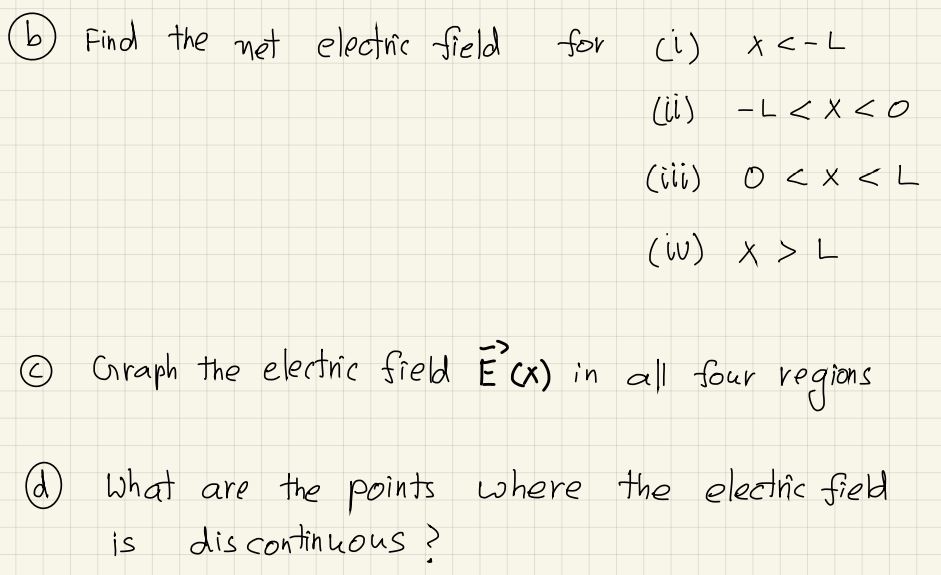 (b) Find the net electric field for (i) x < -L
(ii) -L < x < 0
(iii) 0 < x < L
(iv) x > L
(c) Graph the electric field E⃗(x) in all four regions
(d) What are the points where the electric field
is discontinuous?